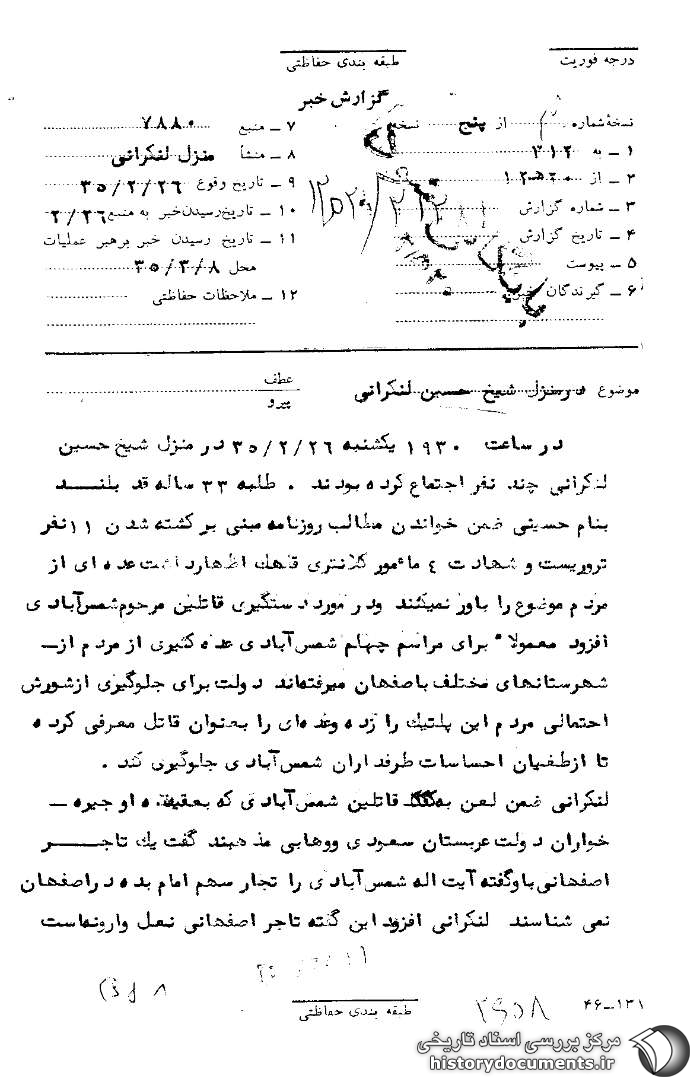 درجه فوریت
طبقه بندی حفاظتی
گزارش خبر
نسخهٔ شماره از پنج نسخه
۱ - به ۳۱۲
۲ - از
۳ - شماره گزارش
۴ - تاریخ گزارش
۵ - پیوست
۶ - گیرندگان خبر
۷ - منبع ۷۸۸۰
۸ - منشأ منزل لنکرانی
۹ - تاریخ وقوع ۳۵/۲/۲۶
۱۰ - تاریخ رسیدن خبر به منبع ۲/۲۶
۱۱ - تاریخ رسیدن خبر برهبر عملیات
محل ۳۵/۳/۸
۱۲ - ملاحظات حفاظتی
موضوع درمنزل شیخ حسین لنکرانی
عطف
پیرو
در ساعت ۱۹۳۰ یکشنبه ۳۵/۲/۲۶ در منزل شیخ حسین
لنکرانی چند نفر اجتماع کرده بودند . طلبه ۳۳ ساله قد بلنــد
بنام حسینی ضمن خواندن مطالب روزنامه مبنی بر کشته شدن ۱۱ نفر
تروریست و شهادت ٤ مأمور کلانتری قلهک اظهارداشت عده ای از
مردم موضوع را باور نمیکنند ودر مورد دستگیری قاتلین مرحوم شمس‌آبادی
افزود معمولاً برای مراسم چهلم شمس‌آبادی عده کثیری از مردم از -
شهرستانهای مختلف باصفهان میرفته‌اند دولت برای جلوگیری ازشورش
احتمالی مردم این پلتیک را زده وعده‌ای را بعنوان قاتل معرفی کرده
تا ازطغیان احساسات طرفداران شمس‌آبادی جلوگیری کند .
لنکرانی ضمن لعن به قاتلین شمس‌آبادی که بعقیده او جیره -
خواران دولت عربستان سعودی ووهابی مذهبند گفت یك تاجــر
اصفهانی باوگفته آیت اله شمس‌آبادی را تجار سهم امام بده دراصفهان
نمی شناسند لنکرانی افزود این گفته تاجر اصفهانی نعل وارونه‌است
۲۹۵۸
۴۶-۱۳۱
طبقه بندی حفاظتی
مرکز بررسی اسناد تاریخی
historydocuments.ir